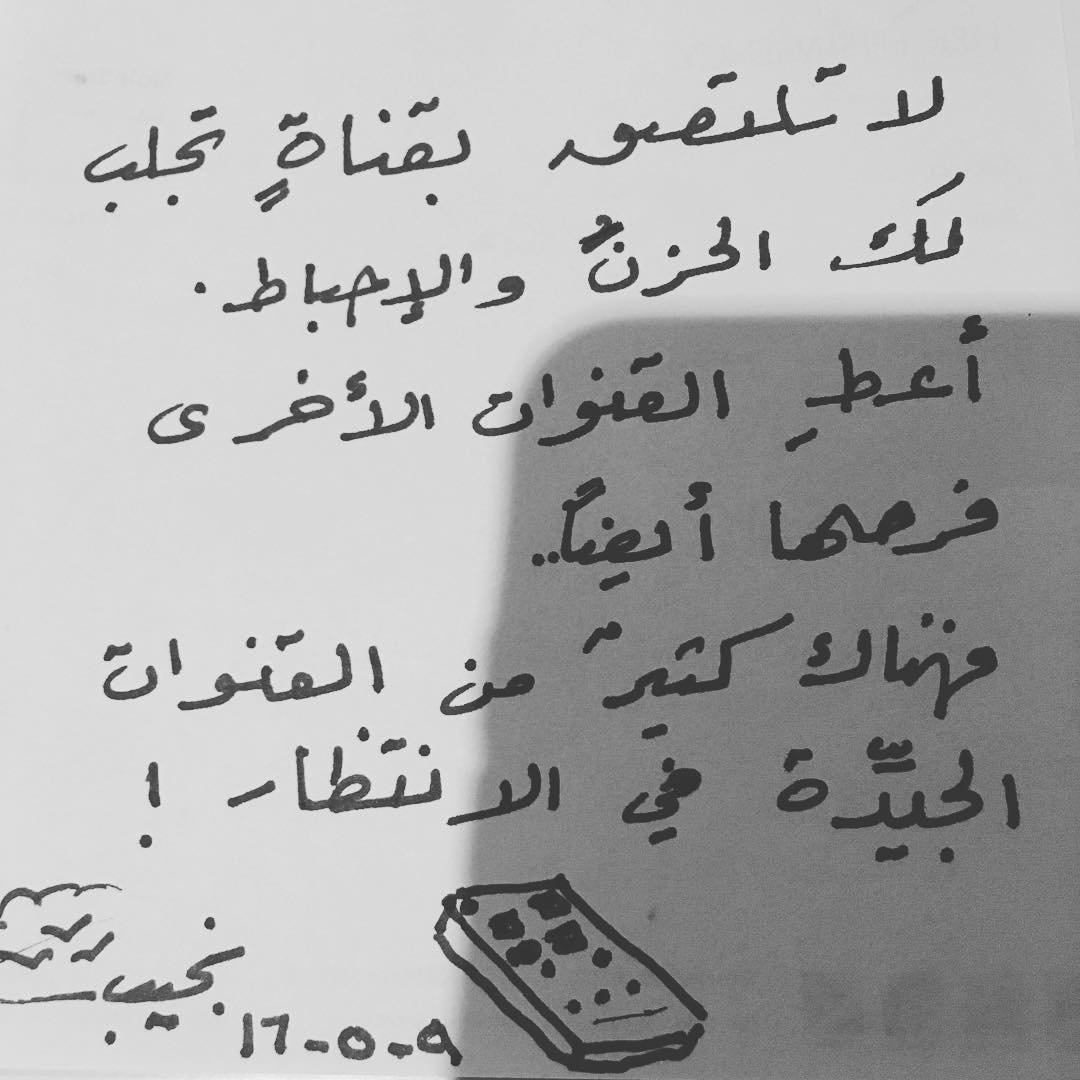 لا تلتصق بقناةٍ تجلب
لكَ الحزنُ والإحباط.
أعطِ القنوات الأخرى
فرصها أيضاً..
فهناك كثيرٌ من القنوات
الجيّدة في الانتظار!
نجيب
١٦-٥-٩